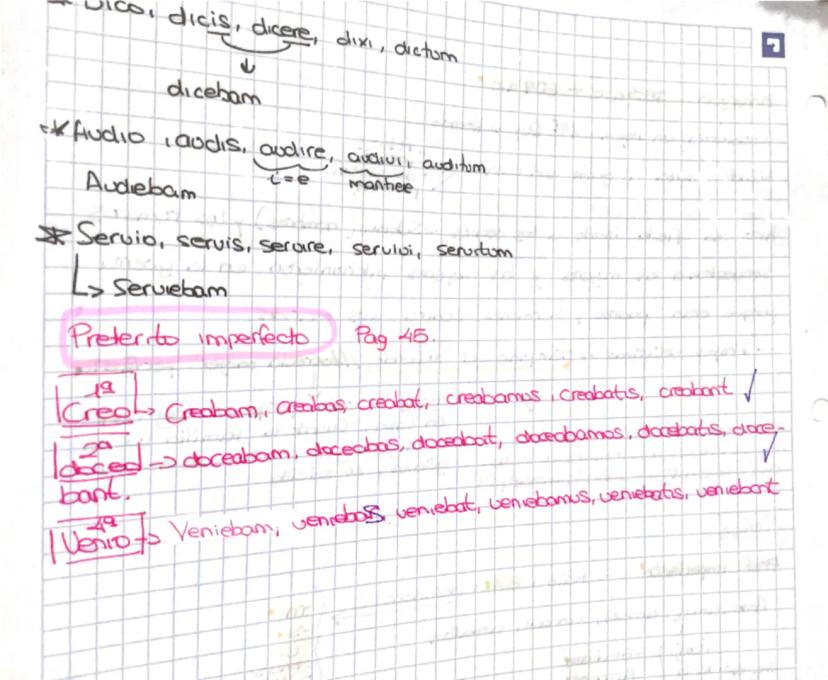 Dico, dicis, dicere, dixi, dictum
dicebam
Audio, audis, audire, audivi, auditum
i=e mantiee
Audiebam
Servio, servis, servire, servivi, servitum
Serviebam
Preterito imperfecto Pag 45.
1ª
Creo → Creabam, creabas, creabat, creabamus, creabatis, creabant ✓
2ª
doceo → doceabam, doceabas, doceabat, doceabamos, docebatis, doce-
bant. ✓
4ª
Venio → Veniebam, veniebas veniebat, veniebamus, veniebatis, veniebant